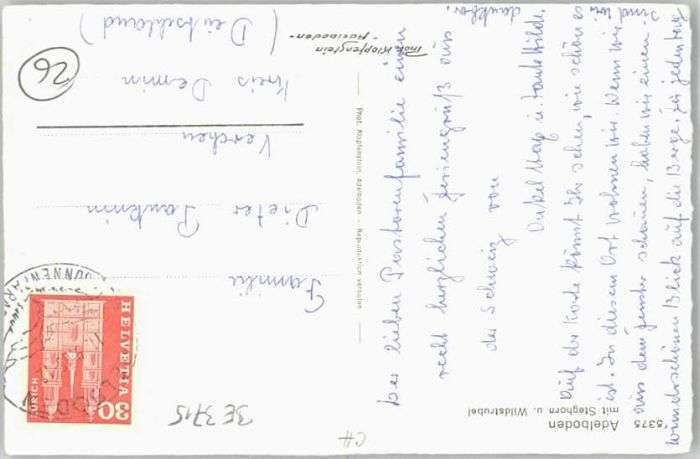 15375 Adelboden
mit Steghorn u. Wildstrubel
Der lieben Pastorenfamilie einen
recht herzlichen Feriengruß aus
der Schweiz von
Onkel u. Tante Hilde.
Auf der Karte könnt Ihr sehen, wie schön es
ist. In diesem Ort wohnen wir. Wenn wir
aus dem Fenster schauen, haben wir einen
wunderschönen Blick auf die Berge, für jeden Tag
sind wir
dankbar.
Phot. Klopfenstein, Adelboden - Reproduktion verboten
Phot. Klopfenstein
- Adelboden -
HELVETIA
ZÜRICH
30
Familie
Dieter
Verchen
Kreis Demmin
(Deutschland)
26
3E 3715
CH